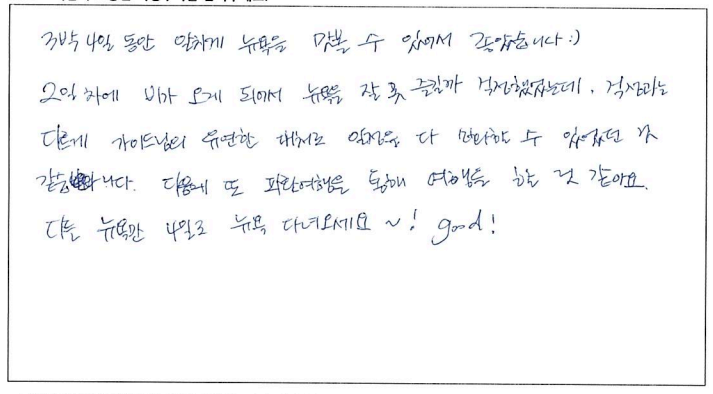 3박 4일 동안 알차게 뉴욕을 맛볼 수 있어서 좋았습니다 :)
2일차에 비가 오게 되어서 뉴욕을 잘 못 즐길까 걱정했었는데, 걱정과는
다르게 가이드님의 유연한 대처로 일정을 다 소화할 수 있었던 것
같습니다. 다음에 또 파란여행을 통해 여행을 할 것 같아요.
다들 뉴욕만 4일로 뉴욕 다녀오세요 ~! good!